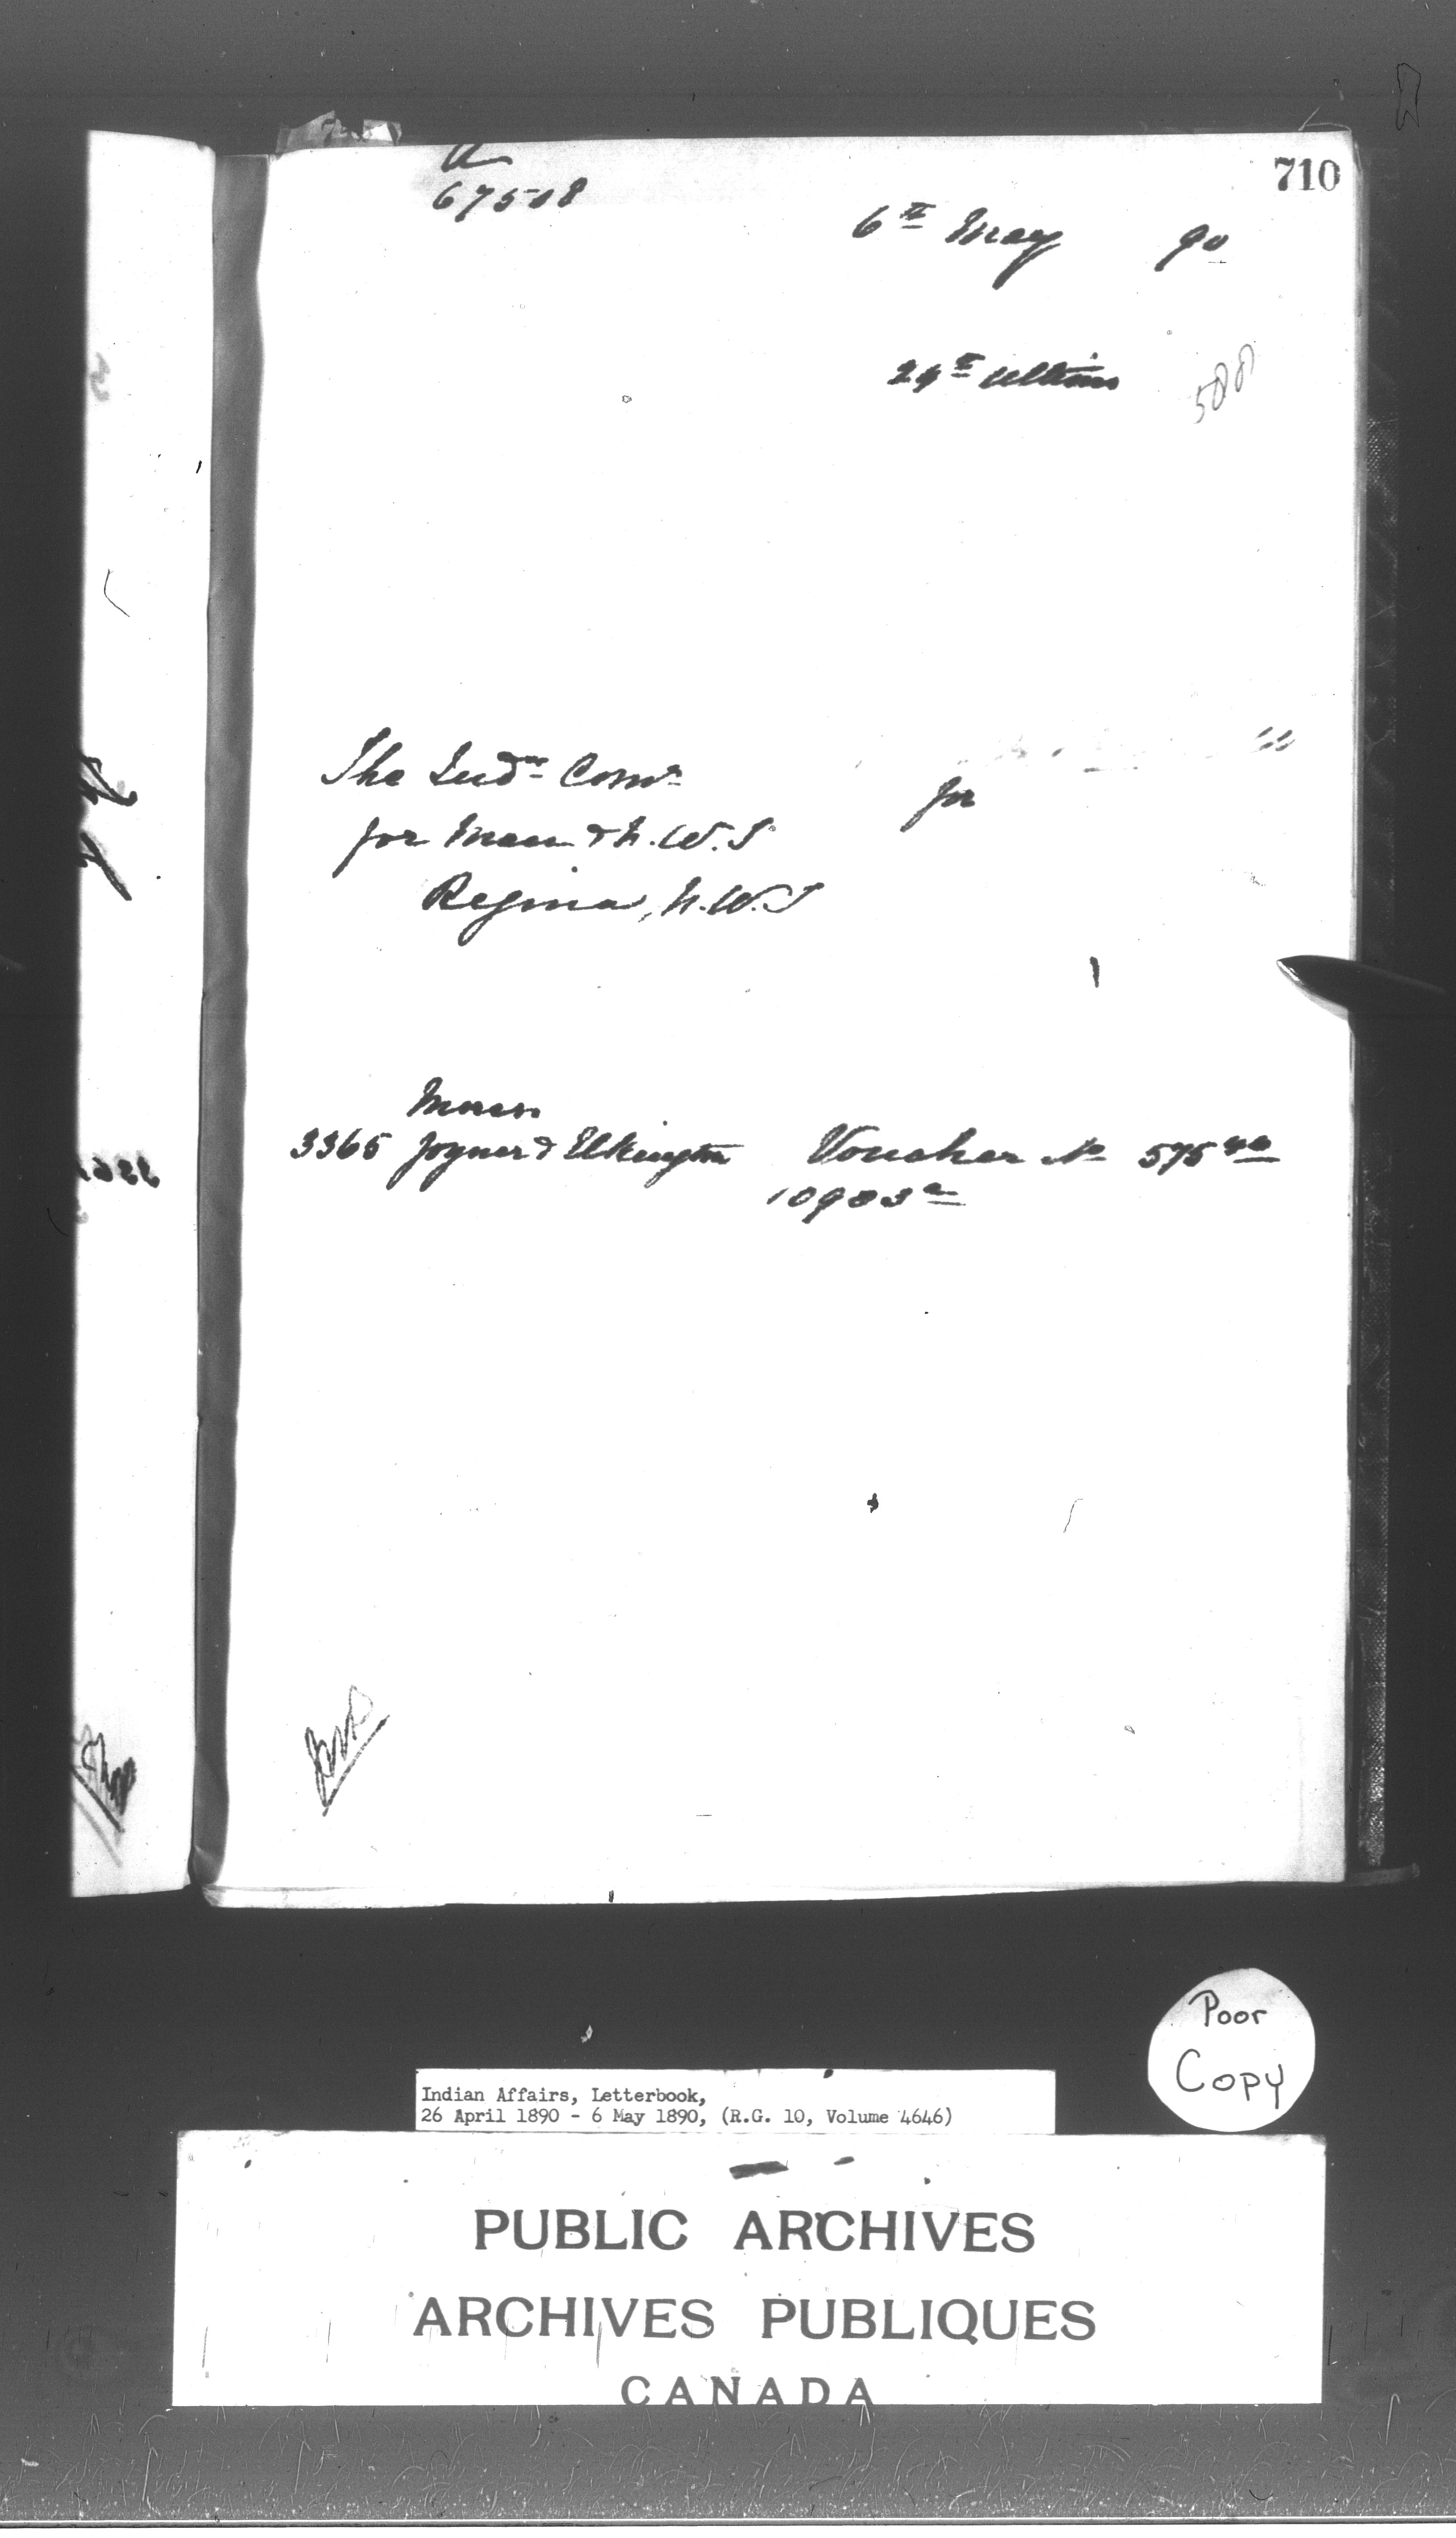 710
67508
6th May 90
29th ultimo
588
The Indn Comr
for Man & N.W.T
for
Regina, N.W.T
Messrs
3365 Joyner & Elkington Voucher No 575
10983
Poor
Copy
Indian Affairs, Letterbook,
26 April 1890 - 6 May 1890, (R.G. 10, Volume 4646)
PUBLIC ARCHIVES
ARCHIVES PUBLIQUES
CANADA